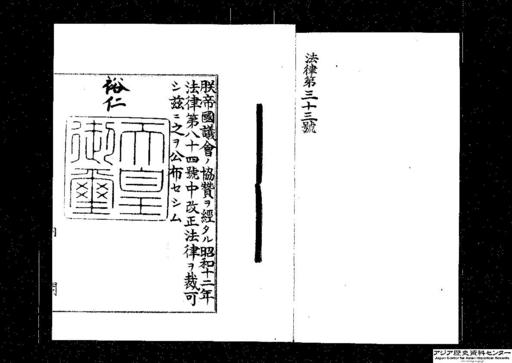 法律第三十三號
朕帝國議會ノ協贊ヲ經タル昭和十二年
法律第八十四號中改正法律ヲ裁可
シ茲ニ之ヲ公布セシム
裕仁
天皇
御璽
アジア歴史資料センター
Japan Center for Asian Historical Records